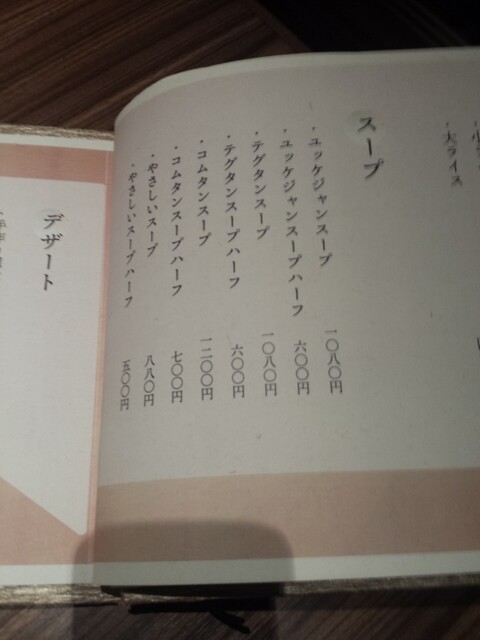 ・大ライス
スープ
・ユッケジャンスープ 一〇八〇円
・ユッケジャンスープハーフ 六〇〇円
・テグタンスープ 一〇八〇円
・テグタンスープハーフ 六〇〇円
・コムタンスープ 一二〇〇円
・コムタンスープハーフ 七〇〇円
・やさしいスープ 八八〇円
・やさしいスープハーフ 五〇〇円
デザート